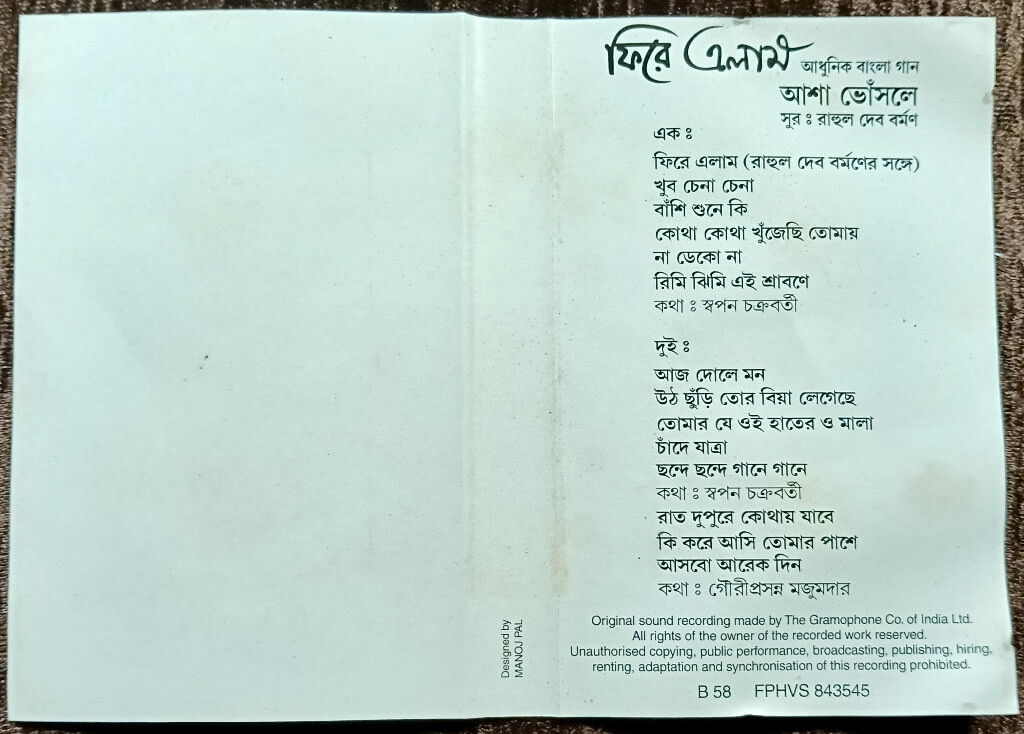 ফিরে এলাম আধুনিক বাংলা গান
আশা ভোঁসলে
সুর ঃ রাহুল দেব বর্মণ
এক ঃ
ফিরে এলাম (রাহুল দেব বর্মণের সঙ্গে)
খুব চেনা চেনা
বাঁশি শুনে কি
কোথা কোথা খুঁজেছি তোমায়
না ডেকো না
রিমি ঝিমি এই শ্রাবণে
কথা ঃ স্বপন চক্রবর্তী
দুই ঃ
আজ দোলে মন
উঠ ছুঁড়ি তোর বিয়া লেগেছে
তোমার যে ওই হাতের ও মালা
চাঁদে যাত্রা
ছন্দে ছন্দে গানে গানে
কথা ঃ স্বপন চক্রবর্তী
রাত দুপুরে কোথায় যাবে
কি করে আসি তোমার পাশে
আসবো আরেক দিন
কথা ঃ গৌরীপ্রসন্ন মজুমদার
Original sound recording made by The Gramophone Co. of India Ltd.
All rights of the owner of the recorded work reserved.
Unauthorised copying, public performance, broadcasting, publishing, hiring,
renting, adaptation and synchronisation of this recording prohibited.
B 58 FPHVS 843545
Designed by
MANOJ PAL